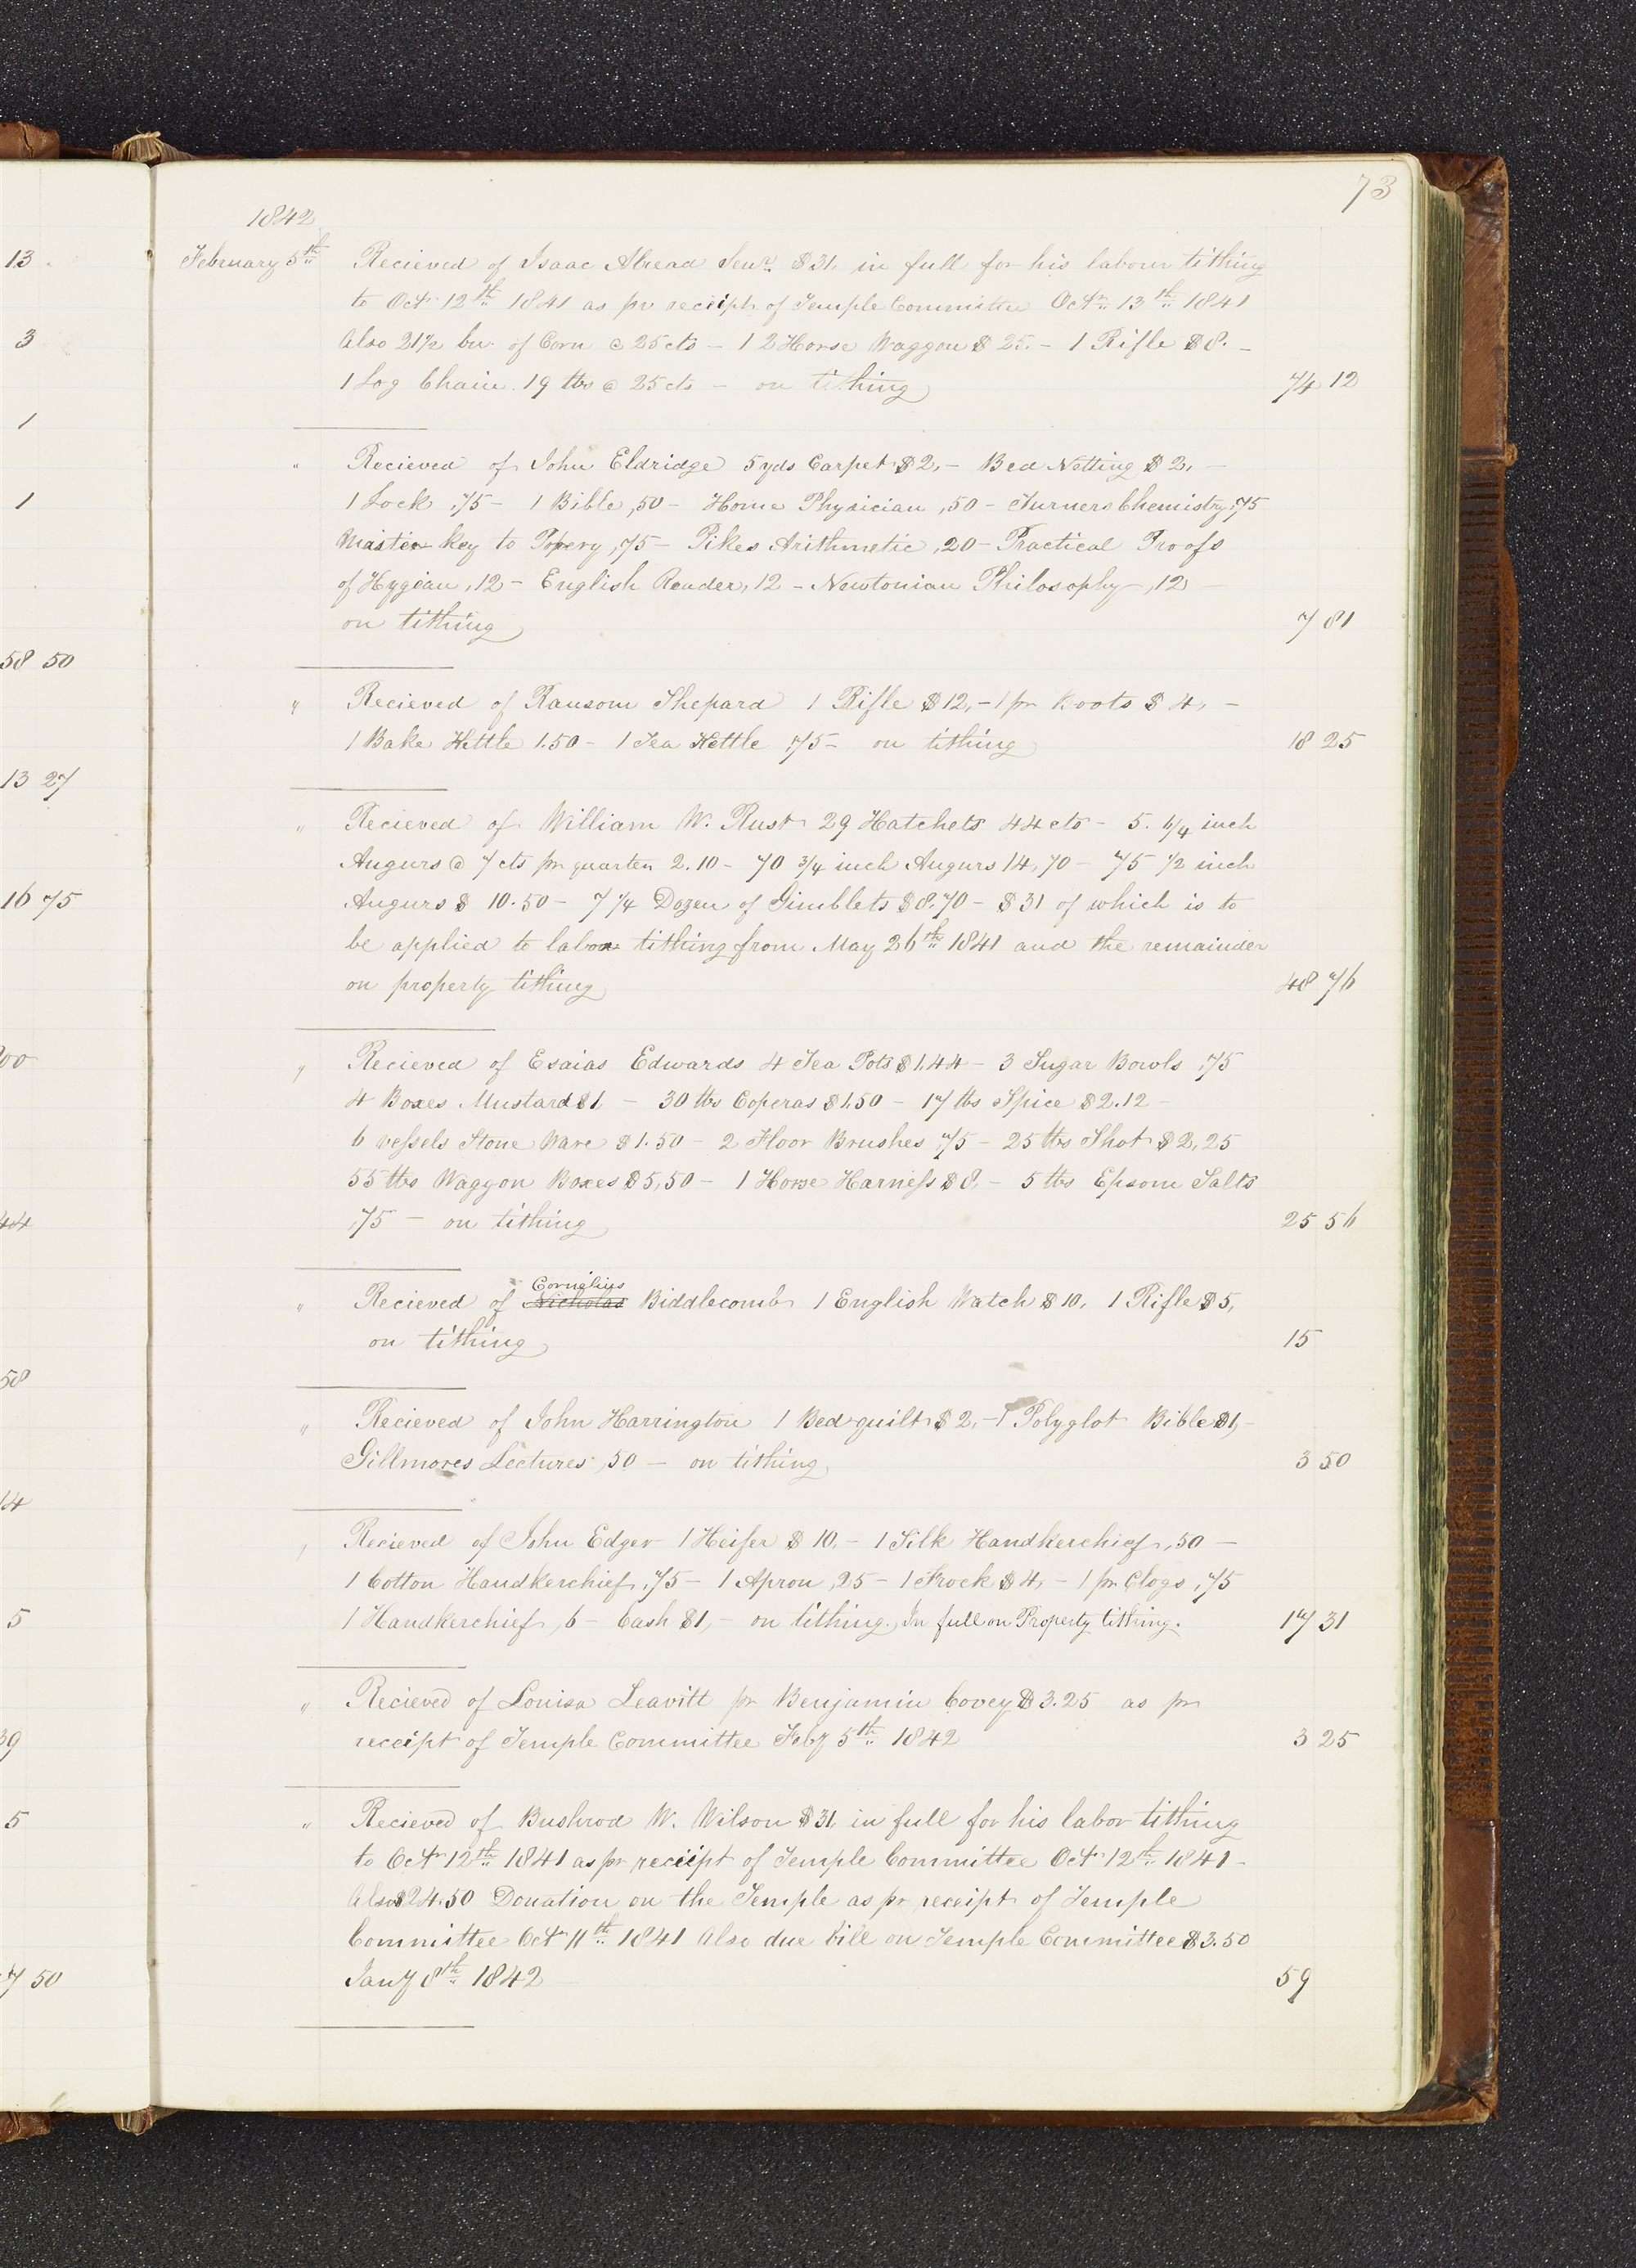 73
1842
February 5th Recieved of Isaac Alread Senr. $31, in full for his labour tithing
to Octr 12th 1841 as pr receipt of Temple Committee Octr. 13th 1841
Also 21½ bu. of Corn @ 25 cts – 1 2 Horse Waggon $25. – 1 Rifle $8. –
1 Log Chain. 19 lbs @ 25 cts – on tithing 74 12
" Recieved of John Eldridge 5 yds Carpet $2, – Bed Netting $2, –
1 Lock ,75 – 1 Bible ,50 – Home Physician ,50 – Turners Chemistry ,75
Master key to Popery ,75 – Pikes Arithmetic ,20 – Practical Proofs
of Hygeian ,12 – English Reader, 12 – Newtonian Philosophy – ,12 –
on tithing 7 81
" Recieved of Ransom Shepard 1 Rifle $12, – 1 pr Boots $4, –
1 Bake Kettle 1.50 – 1 Tea Kettle ,75 – on tithing 18 25
" Recieved of William W. Rust 29 Hatchets 44 cts – 5. 6/4 inch
Augurs @ 7 cts pr quarter 2.10 – 70 3/4 inch Augurs 14,70 – 75 1/2 inch
Augurs $10.50 – 7 1/4 Dozen of Gimblets $8.70 – $31 of which is to
be applied to labor tithing from May 26th 1841 and the remainder
on property tithing 48 76
" Recieved of Esaias Edwards 4 Tea Pots $1,44 – 3 Sugar Bowls ,75
4 Boxes Mustard $1 – 30 lbs Coperas $1.50 – 17 lbs Spice $2.12 –
6 vessels Stone Ware $1.50 – 2 Floor Brushes ,75 – 25 lbs Shot $2,25
55 lbs Waggon Boxes $5,50 – 1 Horse Harness $8, – 5 lbs Epsom Salts
,75 – on tithing 25 56
Cornelius
" Recieved of Nicholas Biddlecomb 1 English Watch $10, 1 Rifle $5,
on tithing 15
" Recieved of John Harrington 1 Bed quilt $2, – 1 Polyglot Bible $1, –
Gillmores Lectures ,50 – on tithing, 3 50
" Recieved of John Edger 1 Heifer $10, – 1 Silk Handkerchief ,50 –
1 Cotton Handkerchief ,75 – 1 Apron ,25 – 1 Frock $4, – 1 pr Clogs ,75
1 Handkerchief ,6 – Cash $1, – on tithing. In full on Property tithing. 17 31
" Recieved of Louisa Leavitt pr Benjamin Covey $3.25 as pr
receipt of Temple Committee Feby 5th 1842 3 25
" Recieved of Bushrod W. Wilson $31 in full for his labor tithing
to Octr 12th 1841 as pr receipt of Temple Committee Octr 12th 1841 –
Also $24.50 Donation on the Temple as pr receipt of Temple
Committee Octr 11th 1841 Also due bill on Temple Committee $3.50
Jany 8th 1842 59
13
3
1
1
58 50
13 27
16 75
00
44
58
14
5
39
5
7 50